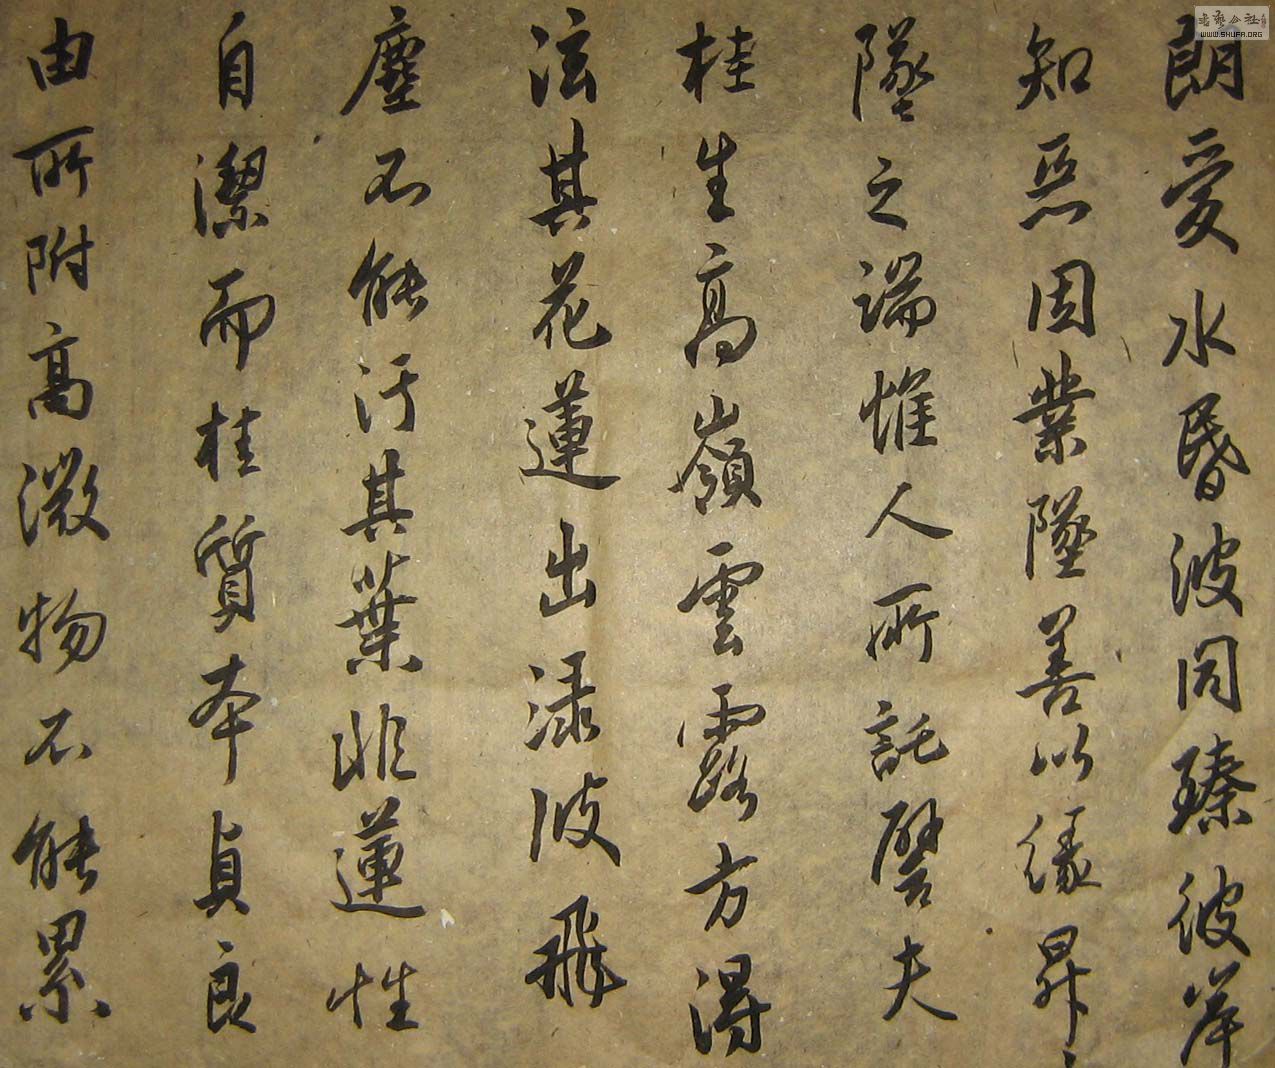 朗愛水昏波同臻彼岸
知惡因業墜善以緣昇
墜之端惟人所託譬夫
桂生高嶺雲露方得
泫其花蓮出淥波飛
塵不能汙其葉非蓮性
自潔而桂質本貞良
由所附高漵物不能累
WWW.SHUFA.ORG